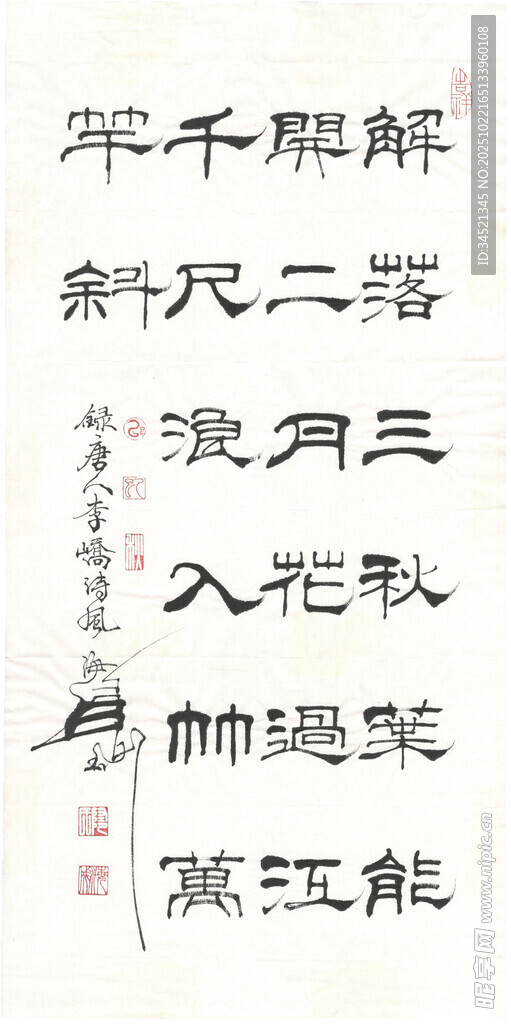 解落三秋葉能
開二月花過江
千尺浪入竹萬
竿斜
録唐人李嶠詩風
吉祥
ID:34521345 NO:20251022165133960108
昵享网 www.nipic.cn